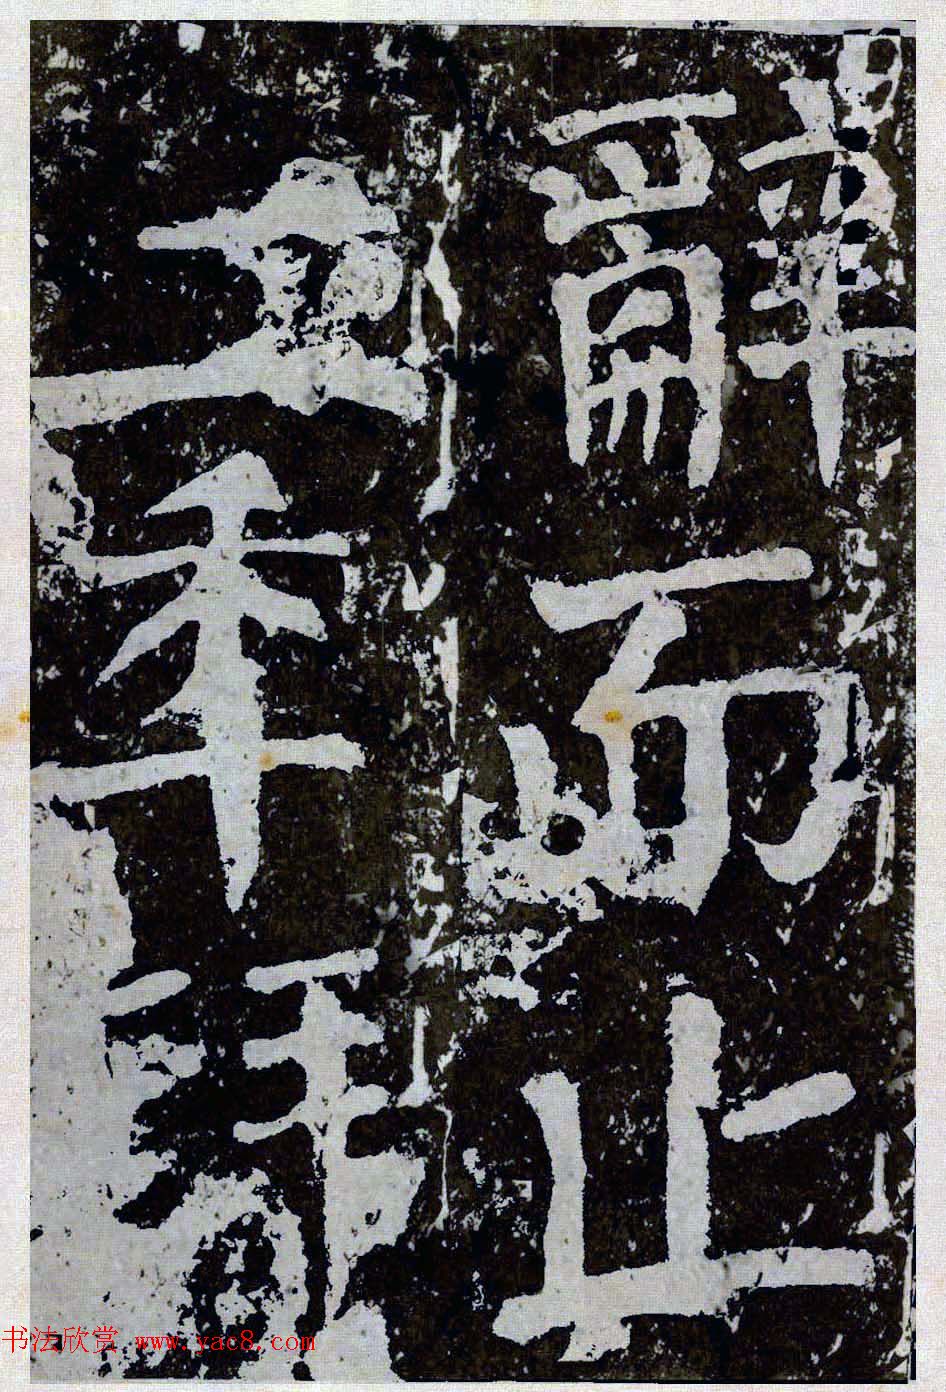 辭而止
五年拜
书法欣赏 www.yac8.com